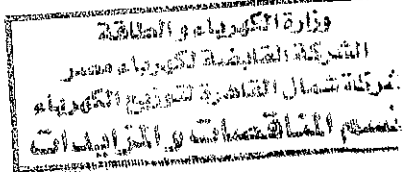 وزارة الكهرباء و الطاقة
الشركة القابضة لكهرباء مصر
شركة شمال القاهرة لتوزيع الكهرباء
قسم المناقصات و المزايدات